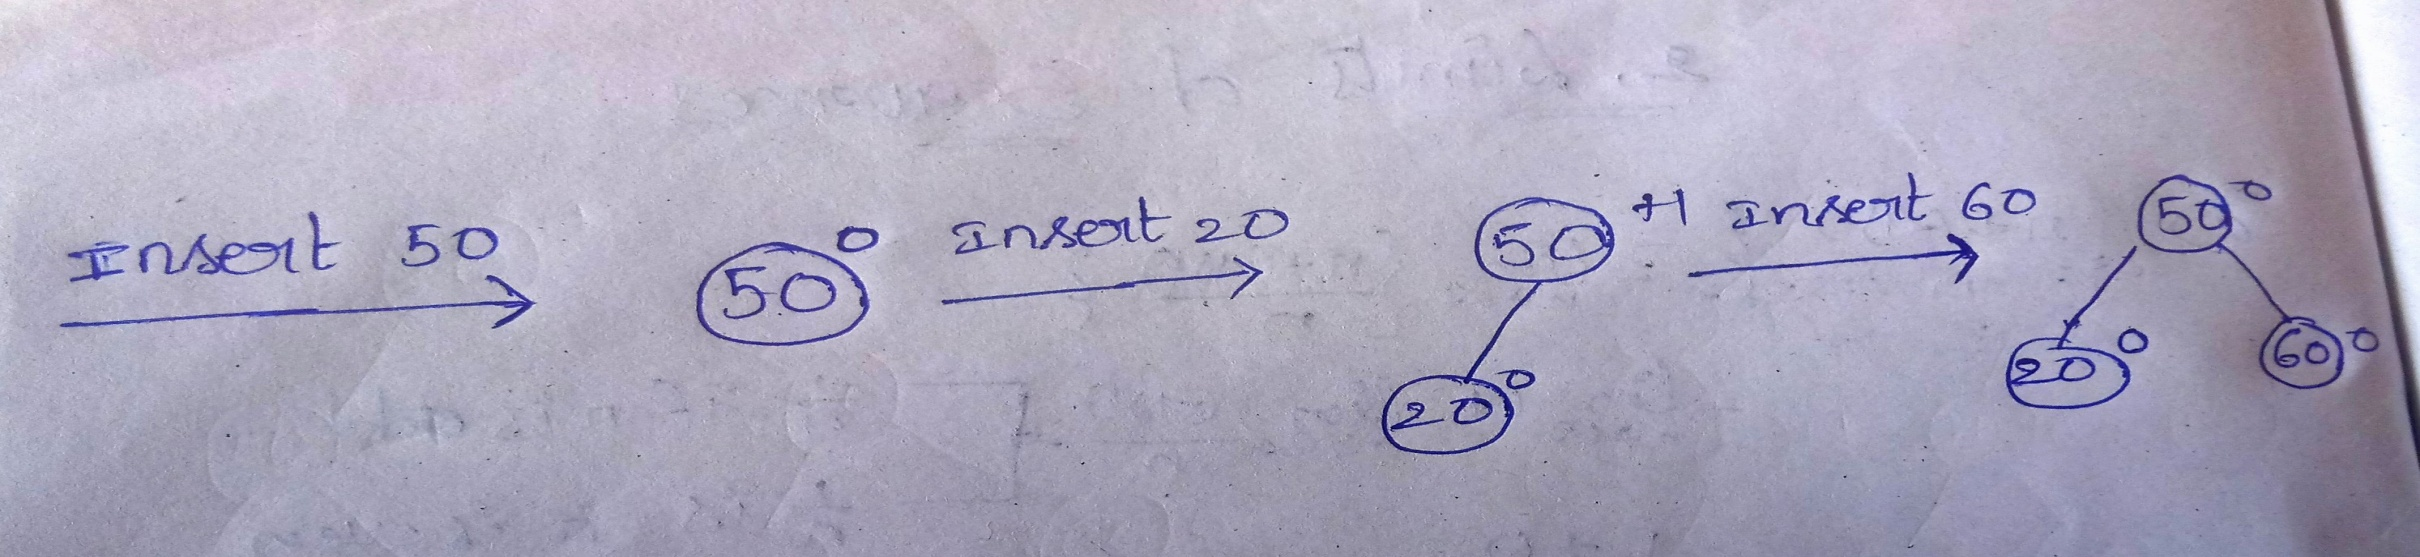 Insert 50
50 0
Insert 20
50 +1
20 0
Insert 60
50 0
20 0
60 0